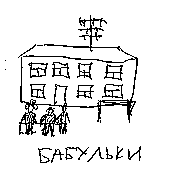 БАБУЛЬКИ